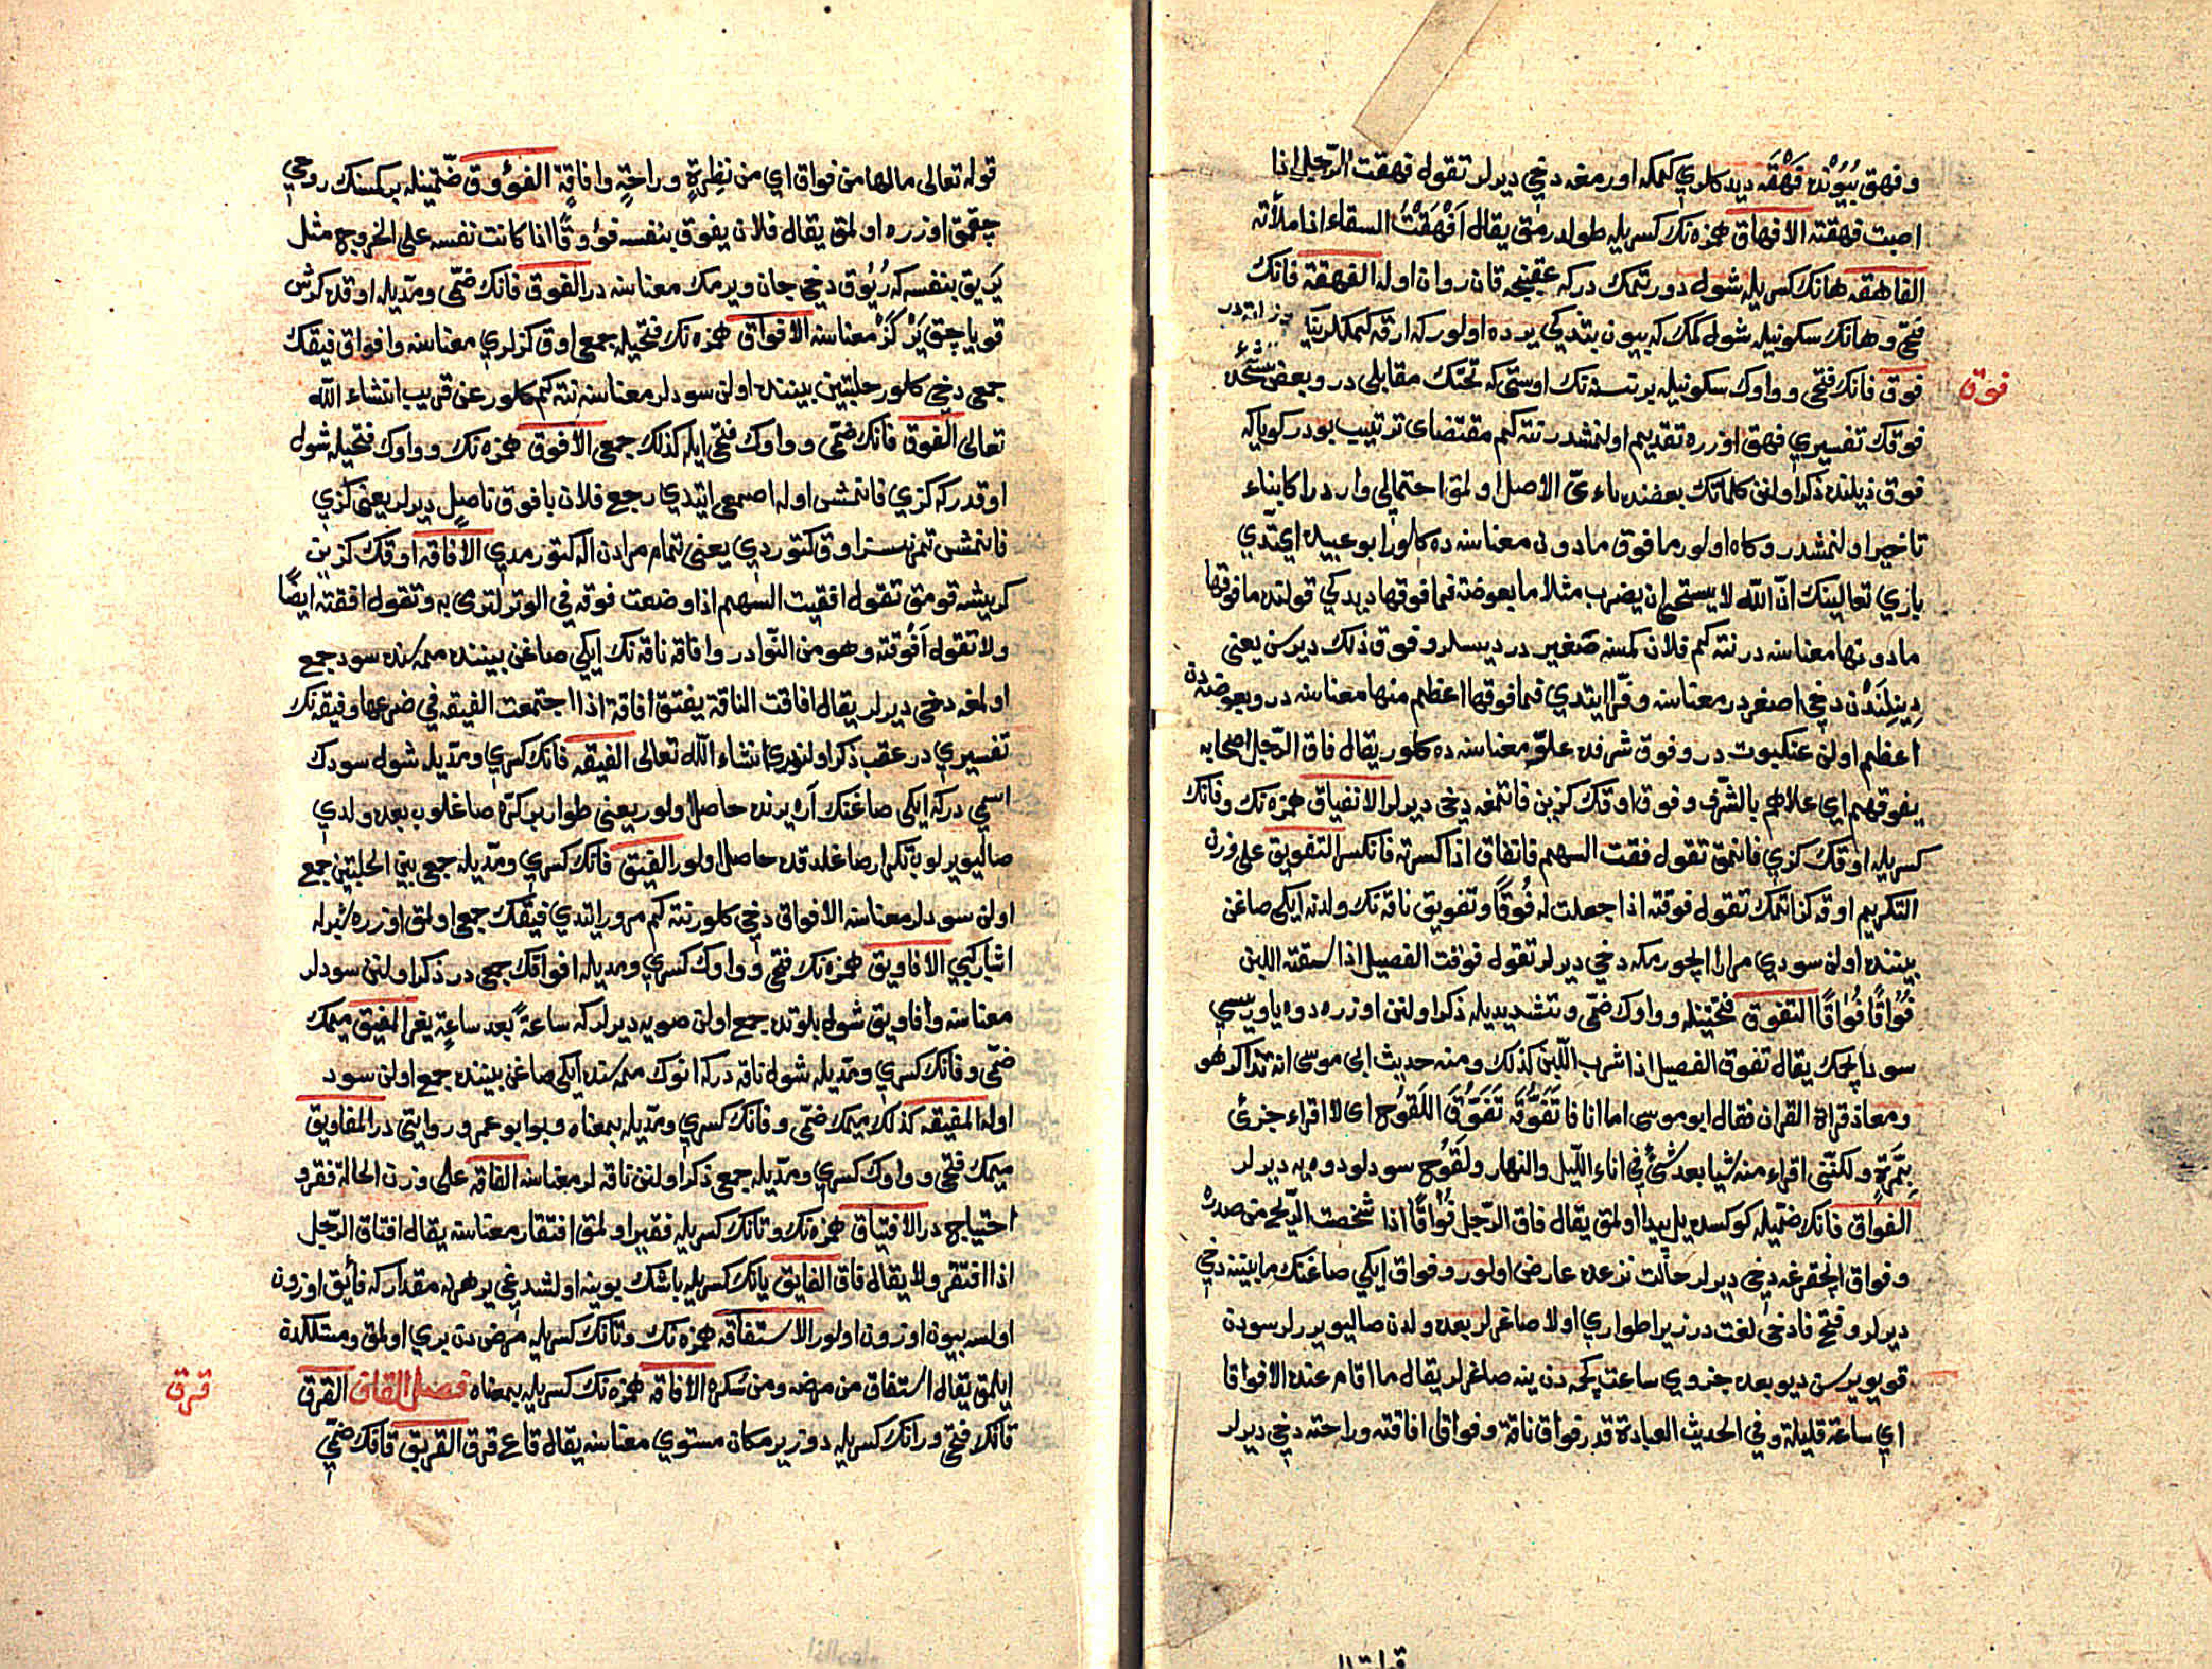 و فهق بیونده فهقه دید کلری کمکه اورمغه دخی دیرلر تقول فهقت الرجل اذا
اصبت فهقته الافهاق همزه نك کسریله طولدرمق یقال افهقت السقاء اذا ملأته
الفاهقه هانك کسریله شول دورتمك درکه عقبنجه قان روان اوله الفهقة فانك
فتحی و هانك سکونیله شول کمك که بیون بتدکی یرده اولور که ارقه کمکلرینك
فوق
فوق فانك فتحی و واوك سکونیله بر نسنه نك اوستی که تحتك مقابلی در و بعض
فوقك تفسیری فهق اوزره تقدیم اولنمشدر نته کیم مقتضای ترتیب بودر کویا که
فوق ذیلنده ذکر اولنن کلماتك بعضنده یاءی الاصل اولمق احتمالی واردر اکا بناء
تاخیر اولنمشدر و کاه اولور ما فوق ما دون معناسنه ده کلور ابو عبیده ایتدی
باری تعالینك ان الله لا یستحیی ان یضرب مثلا ما بعوضة فما فوقها دیدکی قولنده ما فوقها
ما دونها معناسنه در نته کیم فلان کمسنه صغیر در دیسلر و فوق ذلك دیرسن یعنی
دینلندن دخی اصغر در معناسنه و فرا ایتدی فما فوقها اعظم منها معناسنه در و بعوضه دن
اعظم اولن عنکبوت در و فوق شرفده علو معناسنه ده کلور یقال فاق الرجل اصحابه
یفوقهم ای علاهم بالشرف و فوق اوقك کزین فانتمغه دخی دیرلر الانفیاق همزه نك و فانك
کسریله اوقك کزی فانمق تقول فقت السهم فانفاق اذا کسرته فانکسر التفویق علی وزن
التکریم اوقه کز ایتمك تقول فوقته اذا جعلت له فوقا و تفویق ناقه نك ولدنه ایکی صاغن
بیننده اولن سودی مرارا ایچورمکه دخی دیرلر تقول فوقت الفصیل اذا سقته اللبن
فواقا فواقا التفوق فتحتینله و واوك ضمی و تشدیدیله ذکر اولنن اوزره دوه یاوریسی
سود ایچمك یقال تفوق الفصیل اذا شرب اللبن کذلك و منه حدیث ابی موسی انه تذاکر هو
و معاذ قراة القران فقال ابو موسی اما انا فاتفوقه تفوق اللقوح ای لا اقراء جزئی
بمرة ولکننی اقراء منه شیا بعد شئ فی اناء اللیل والنهار و لقوح سودلو دوه یه دیرلر
الفواق فانك ضمیله کوکسده یل پیدا اولمق یقال فاق الرجل فواقا اذا شخصت الریح من صدره
و فواق انچقرغه دخی دیرلر حالت نزعده عارض اولور و فواق ایکی صاغنك مابیننه دخی
دیرلر و فتح فا دخی لغت در زیرا طواری اولا صاغرلر بعده ولدن صالیویررلر سودن
قویویرسن دیو بعده جزوی ساعت کچدن ینه صاغرلر یقال ما اقام عنده الا فواقا
ای ساعة قلیلة و فی الحدیث العیادة قدر فواق ناقة و فواق افاقته و راحته دخی دیرلر
قوله تعالی ما لها من فواق ای من نظرة و راحة و افاقة الفؤوق ضمتینله بر کمسنك روحی
چقمق اوزره اولمق یقال فلان یفوق بنفسه فؤوقا اذا کانت نفسه علی الخروج مثل
یریق بنفسه که ریوق دخی جان ویرمك معناسنه در الفوق فانك ضمی و مدیله اوقده کرش
قویاچق یر کز معناسنه الافواق همزه نك فتحیله جمعی اوق کزلری معناسنه و افواق فیقك
جمعی دخی کلور حلبتین بیننده اولن سودلر معناسنه نته کیم کلور عن قریب انشاء الله
تعالی الفوق فانك ضمی و واوك فتحی ایله کذلك جمعی الافوق همزه نك و واوك فتحیله شول
اوقدر که کزی فانمش اوله اصمعی ایتدی رجع فلان بافوق ناصل دیرلر یعنی کزی
فانمش تمرنسز اوق کتوردی یعنی تمام مرادن اله کتورمدی الافاقه اوقك کزین
کریشه قومق تقول افقت السهم اذا وضعت فوقه فی الوتر لترمی به و تقول افقته ایضا
ولا تقول افوقته و هو من النوادر و افاقه ناقه نك ایکی صاغن بیننده ممه سنده سود جمع
اولمغه دخی دیرلر یقال افاقت الناقة یفتق افاقة اذا اجتمعت الفیقه فی ضرعها و فیقه نك
تفسیری در عقب ذکر اولنوری انشاء الله تعالی الفیقه فانك کسری و مدیله شول سودك
اسمی در که ایکی صاغنك آره یرنده حاصل اولور یعنی طوار بر کره صاغلوب بعده ولدی
صالیویریلوب تکرار صاغلدقده حاصل اولور الفیق فانك کسری و مدیله جمعی بین الحلبتین جمع
اولن سودلر معناسنه الافواق دخی کلور نته کیم مرور ایتدی فیقك جمعی اولمق اوزره شبر له
اشبار کبی الافاویق همزه نك فتحی و واوك کسری و مدیله افواقك جمعی در ذکر اولنن سودلر
معناسنه و افاویق شول بلوتده جمع اولن صویه دیرلر که ساعة بعد ساعة یغر المفیق میمك
ضمی و فانك کسری و مدیله شول ناقه در که انوك ممه سنده ایکی صاغن بیننده جمع اولن سود
اوله المفیقه کذلك میمك ضمی و فانك کسری و مدیله بمعناه و بو ابو عمرو روایتی در المفاویق
میمك فتحی و واوك کسری و مدیله جمعی ذکر اولنن ناقه لر معناسنه الفاقه علی وزن الحالة فقر و
احتیاج در الافتیاق همزه نك و تانك کسریله فقیر اولمق افتقار معناسنه یقال افتاق الرجل
اذا افتقر ولا یقال فاق الفایق یانك کسریله باشك بوینه اولشدغی یر هر نه مقدار که فایق اوزون
اولسه بیون اوزون اولور الاستفاقه همزه نك و تانك کسریله مرضدن بری اولمق و مستلکدن
ایلمق یقال استفاق من مرضه و من سکره الافاقه همزه نك کسریله بمعناه فصل القاف القرق
قرق
قانك فتحی و رانك کسریله دوز یر مکان مستوی معناسنه یقال قاع قرق القریق قافك ضمی